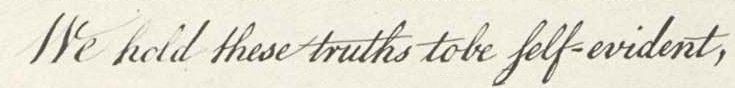 We hold these truths to be ſelf-evident,